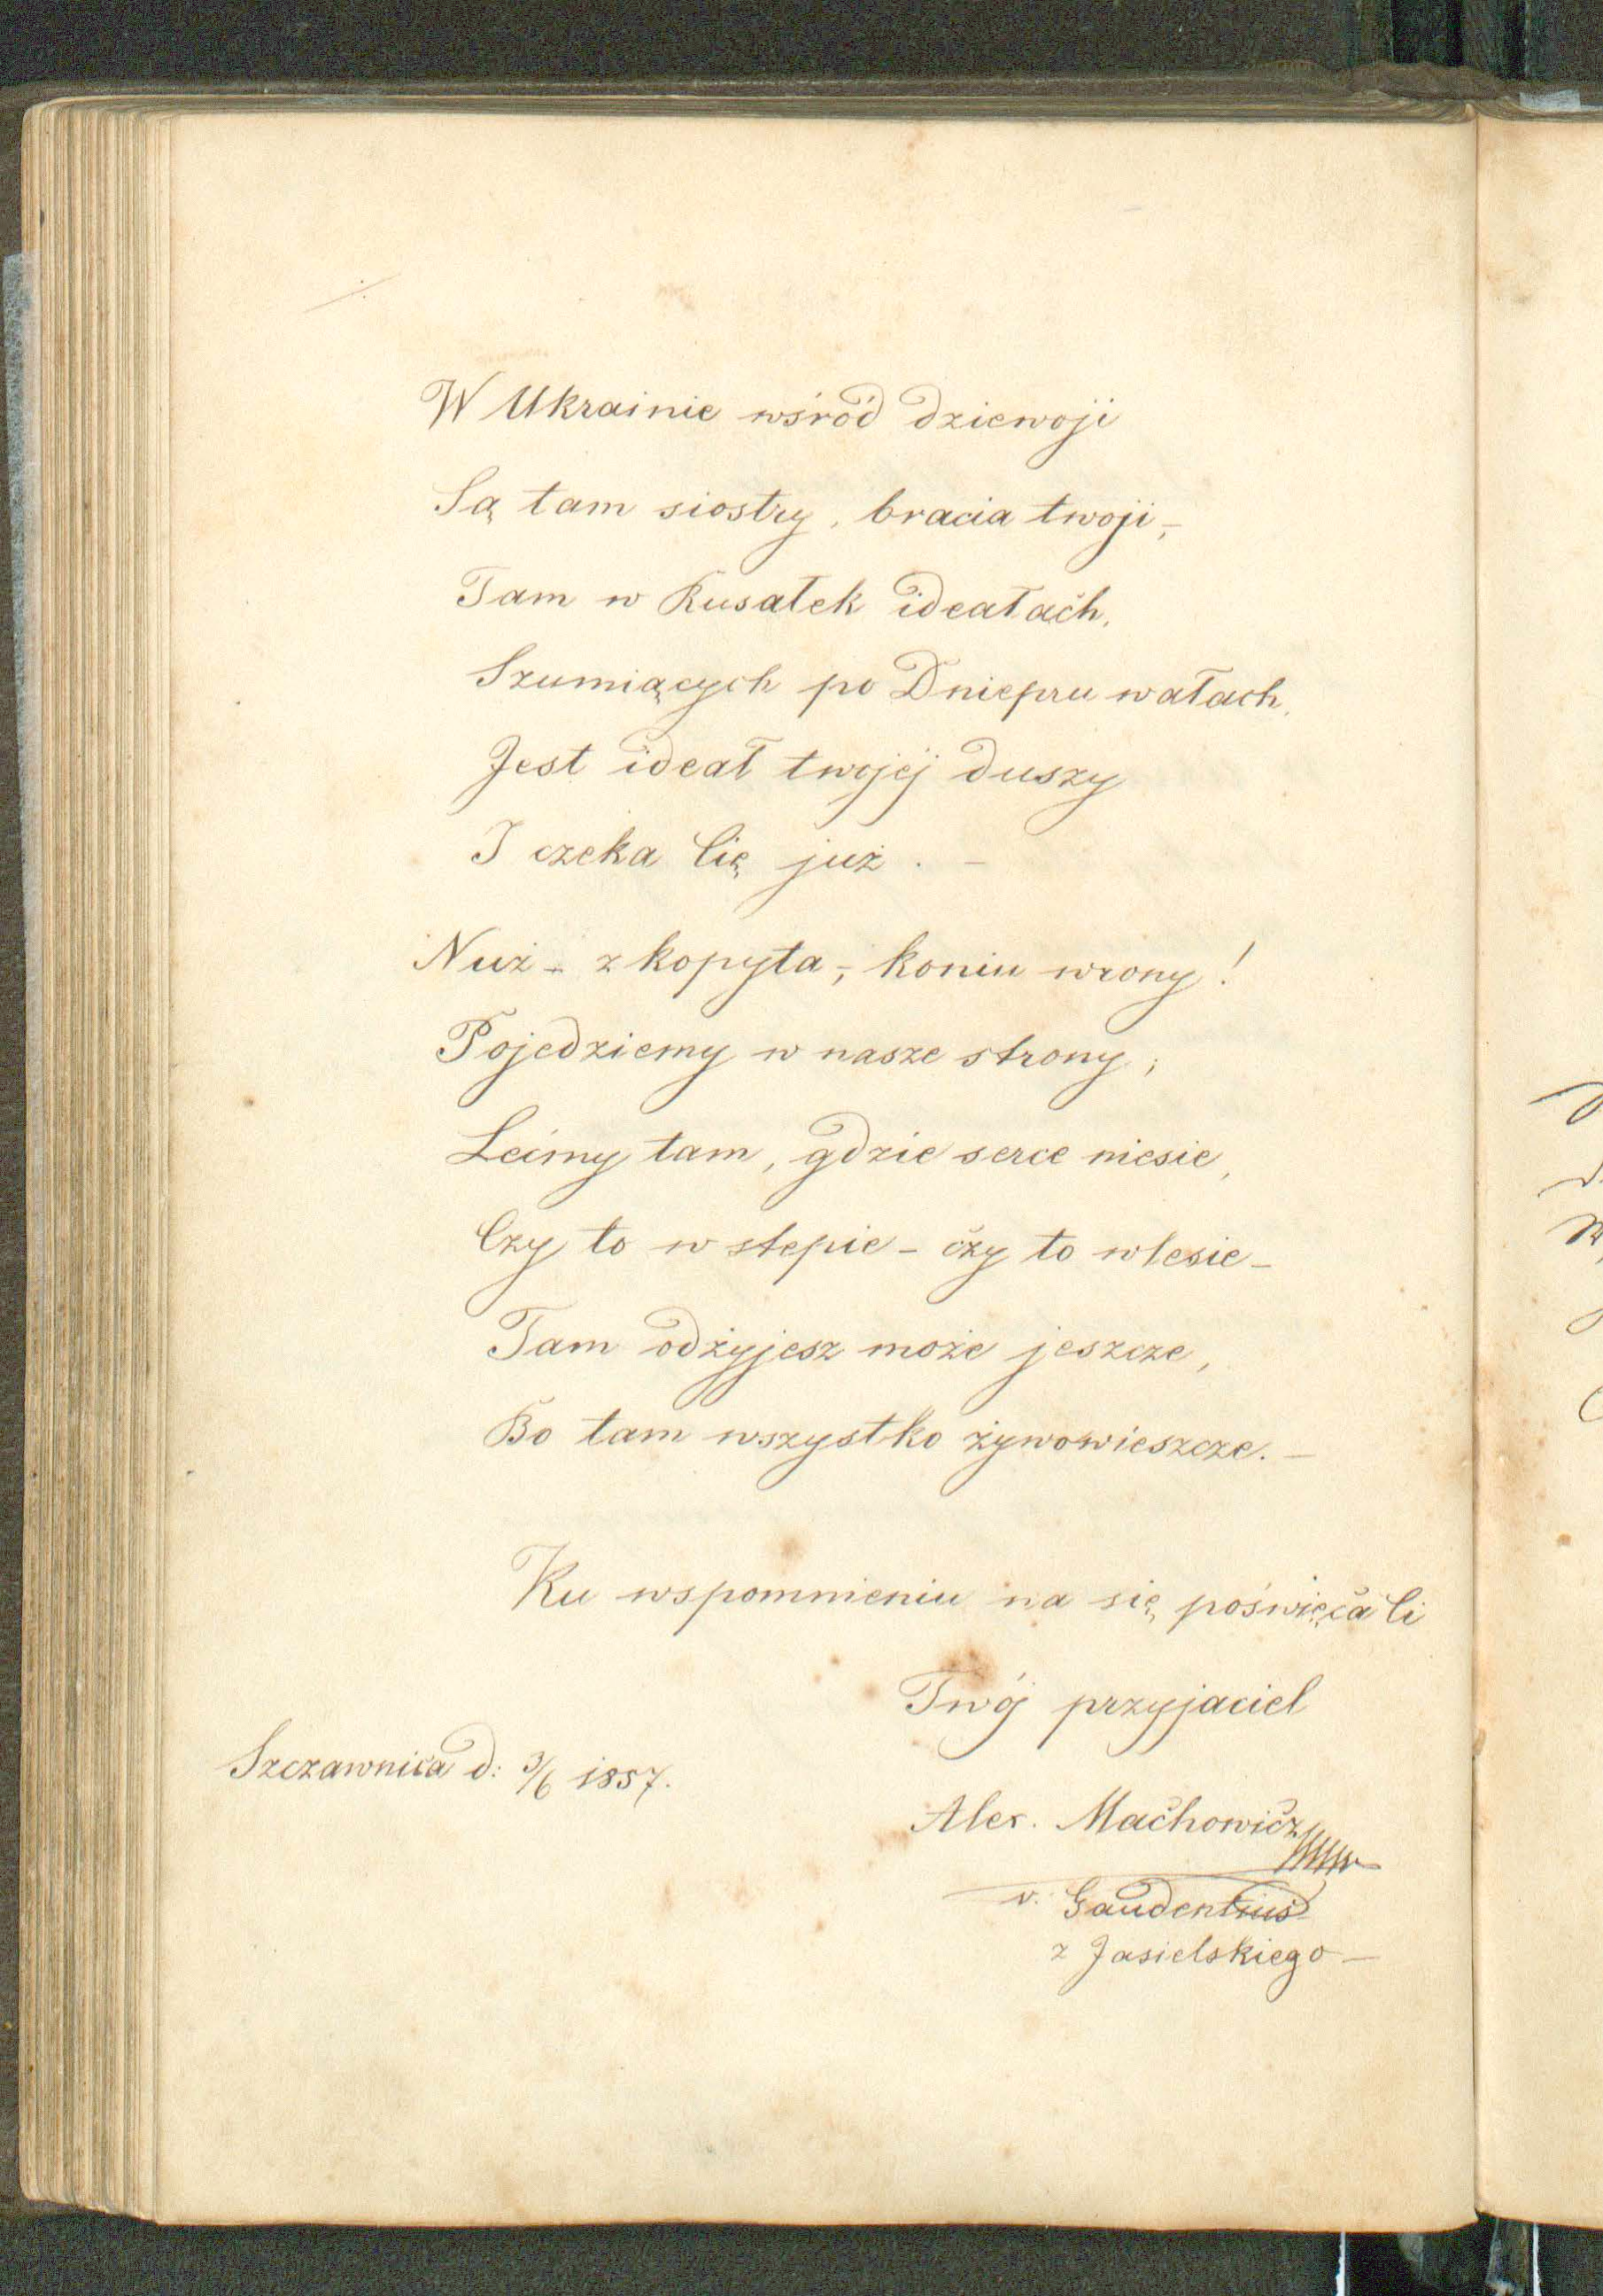 W Ukrainie wśród dziewoji
Są tam siostry, bracia twoji,-
Tam w Rusałek ideałach,
Szumiących po Dniepru wałach,
Jest ideał twojéj duszy
I czeka Cię już. -
Nuż - z kopyta,- koniu wrony!
Pojedziemy w nasze strony;
Lećmy tam, gdzie serce niesie,
Czy to w stepie - czy to w lesie -
Tam odżyjesz może jeszcze,
Bo tam wszystko żywowieszcze. -
Ku wspomnieniu na się poświęca Ci
Twój przyjaciel
Szczawnica d: 3/6 1857.
Alex. Machowicz
v. Gaudentius
z Jasielskiego -